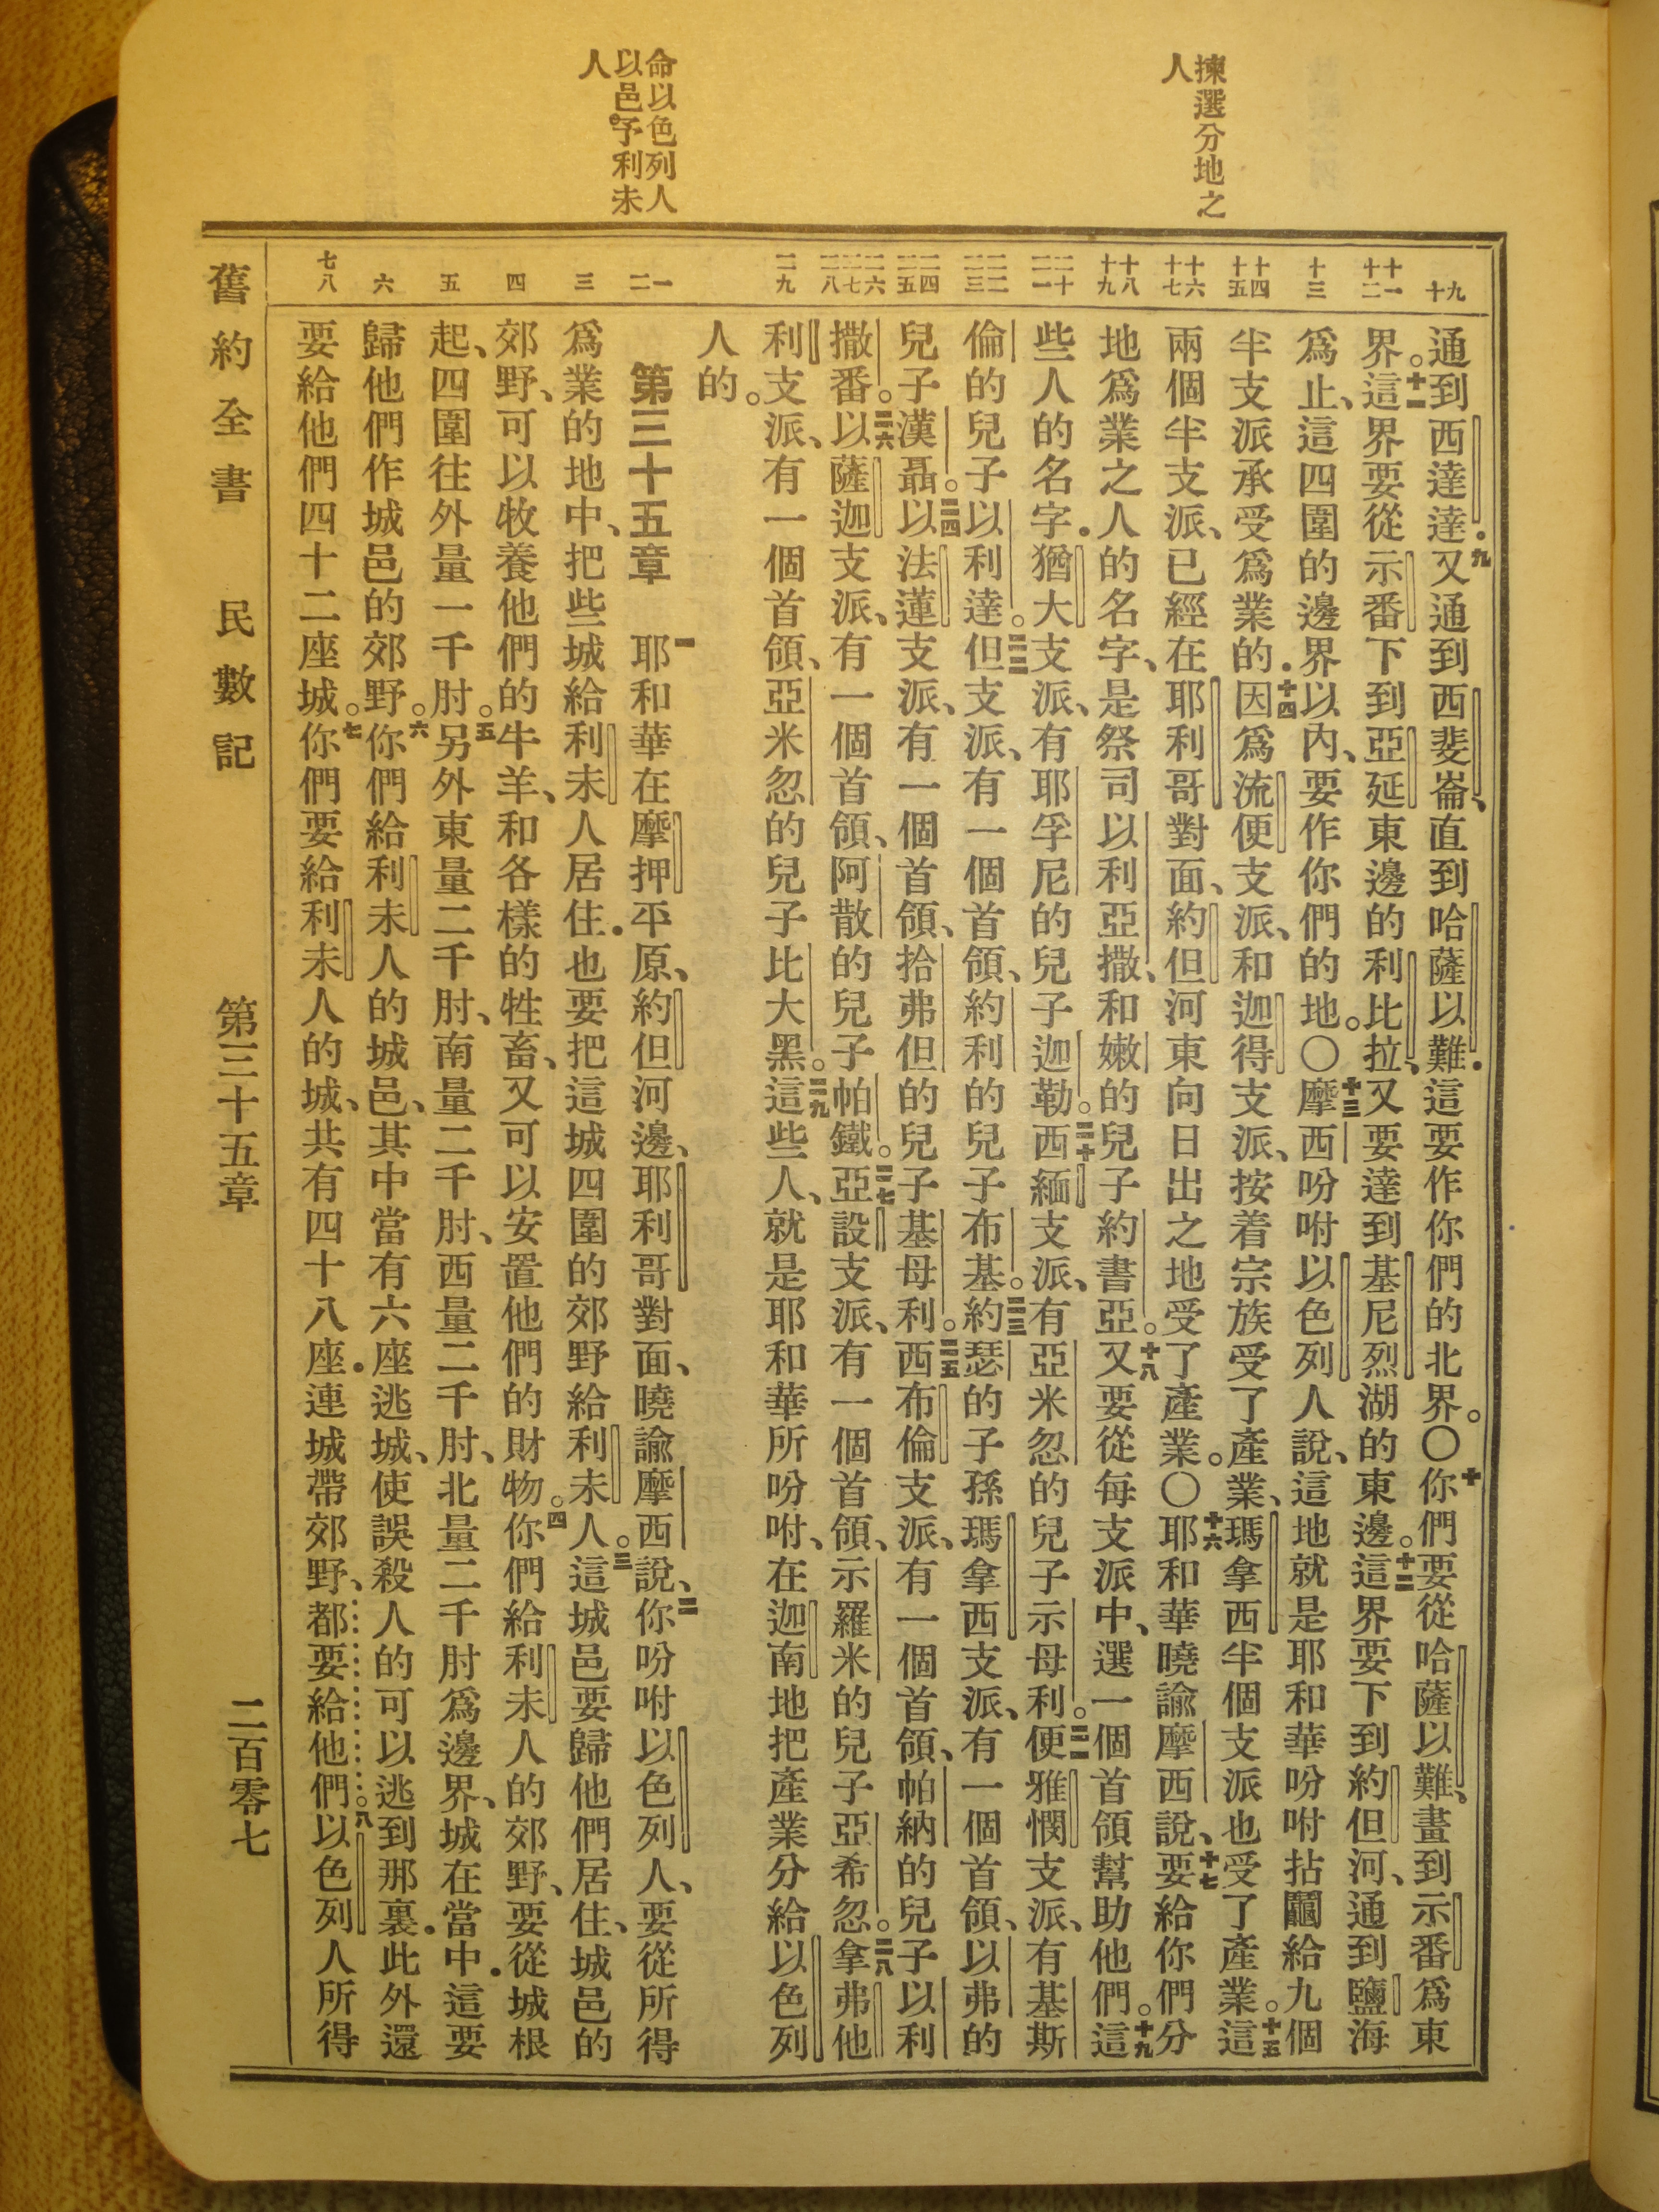 揀選分地之
人
命以色列人
以邑予利未
人
九十
十一十二
十三
十四十五
十六十七
十八十九
二十二一
二二二三
二四二五
二六二七二八
二九
一二
三
四
五
六
七八
通到西達達．九又通到西斐崙、直到哈薩以難．這要作你們的北界。〇十你們要從哈薩以難、畫到示番爲東
界。十一這界要從示番下到亞延東邊的利比拉、又要達到基尼烈湖的東邊。十二這界要下到約但河、通到鹽海
爲止、這四圍的邊界以內、要作你們的地。〇十三摩西吩咐以色列人說、這地就是耶和華吩咐拈鬮給九個
半支派承受爲業的．十四因爲流便支派、和迦得支派、按着宗族受了產業、瑪拿西半個支派也受了產業。十五這
兩個半支派、已經在耶利哥對面、約但河東向日出之地受了產業。〇十六耶和華曉諭摩西說、十七要給你們分
地爲業之人的名字、是祭司以利亞撒、和嫩的兒子約書亞。十八又要從每支派中、選一個首領幫助他們。十九這
些人的名字．猶大支派、有耶孚尼的兒子迦勒。二十西緬支派、有亞米忽的兒子示母利。二一便雅憫支派、有基斯
倫的兒子以利達。二二但支派、有一個首領、約利的兒子布基。二三約瑟的子孫瑪拿西支派、有一個首領、以弗的
兒子漢聶。二四以法蓮支派、有一個首領、拾弗但的兒子基母利。二五西布倫支派、有一個首領、帕納的兒子以利
撒番。二六以薩迦支派、有一個首領、阿散的兒子帕鐵。二七亞設支派、有一個首領、示羅米的兒子亞希忽。二八拿弗他
利支派、有一個首領、亞米忽的兒子比大黑。二九這些人、就是耶和華所吩咐、在迦南地把產業分給以色列
人的。
第三十五章　一耶和華在摩押平原、約但河邊、耶利哥對面、曉諭摩西說、二你吩咐以色列人、要從所得
爲業的地中、把些城給利未人居住．也要把這城四圍的郊野給利未人。三這城邑要歸他們居住、城邑的
郊野、可以牧養他們的牛羊、和各樣的牲畜、又可以安置他們的財物。四你們給利未人的郊野、要從城根
起、四圍往外量一千肘。五另外東量二千肘、南量二千肘、西量二千肘、北量二千肘爲邊界、城在當中．這要
歸他們作城邑的郊野。六你們給利未人的城邑、其中當有六座逃城、使誤殺人的可以逃到那裏．此外還
要給他們四十二座城。七你們要給利未人的城、共有四十八座．連城帶郊野、都要給他們。八以色列人所得
舊約全書　民數記　第三十五章　二百零七